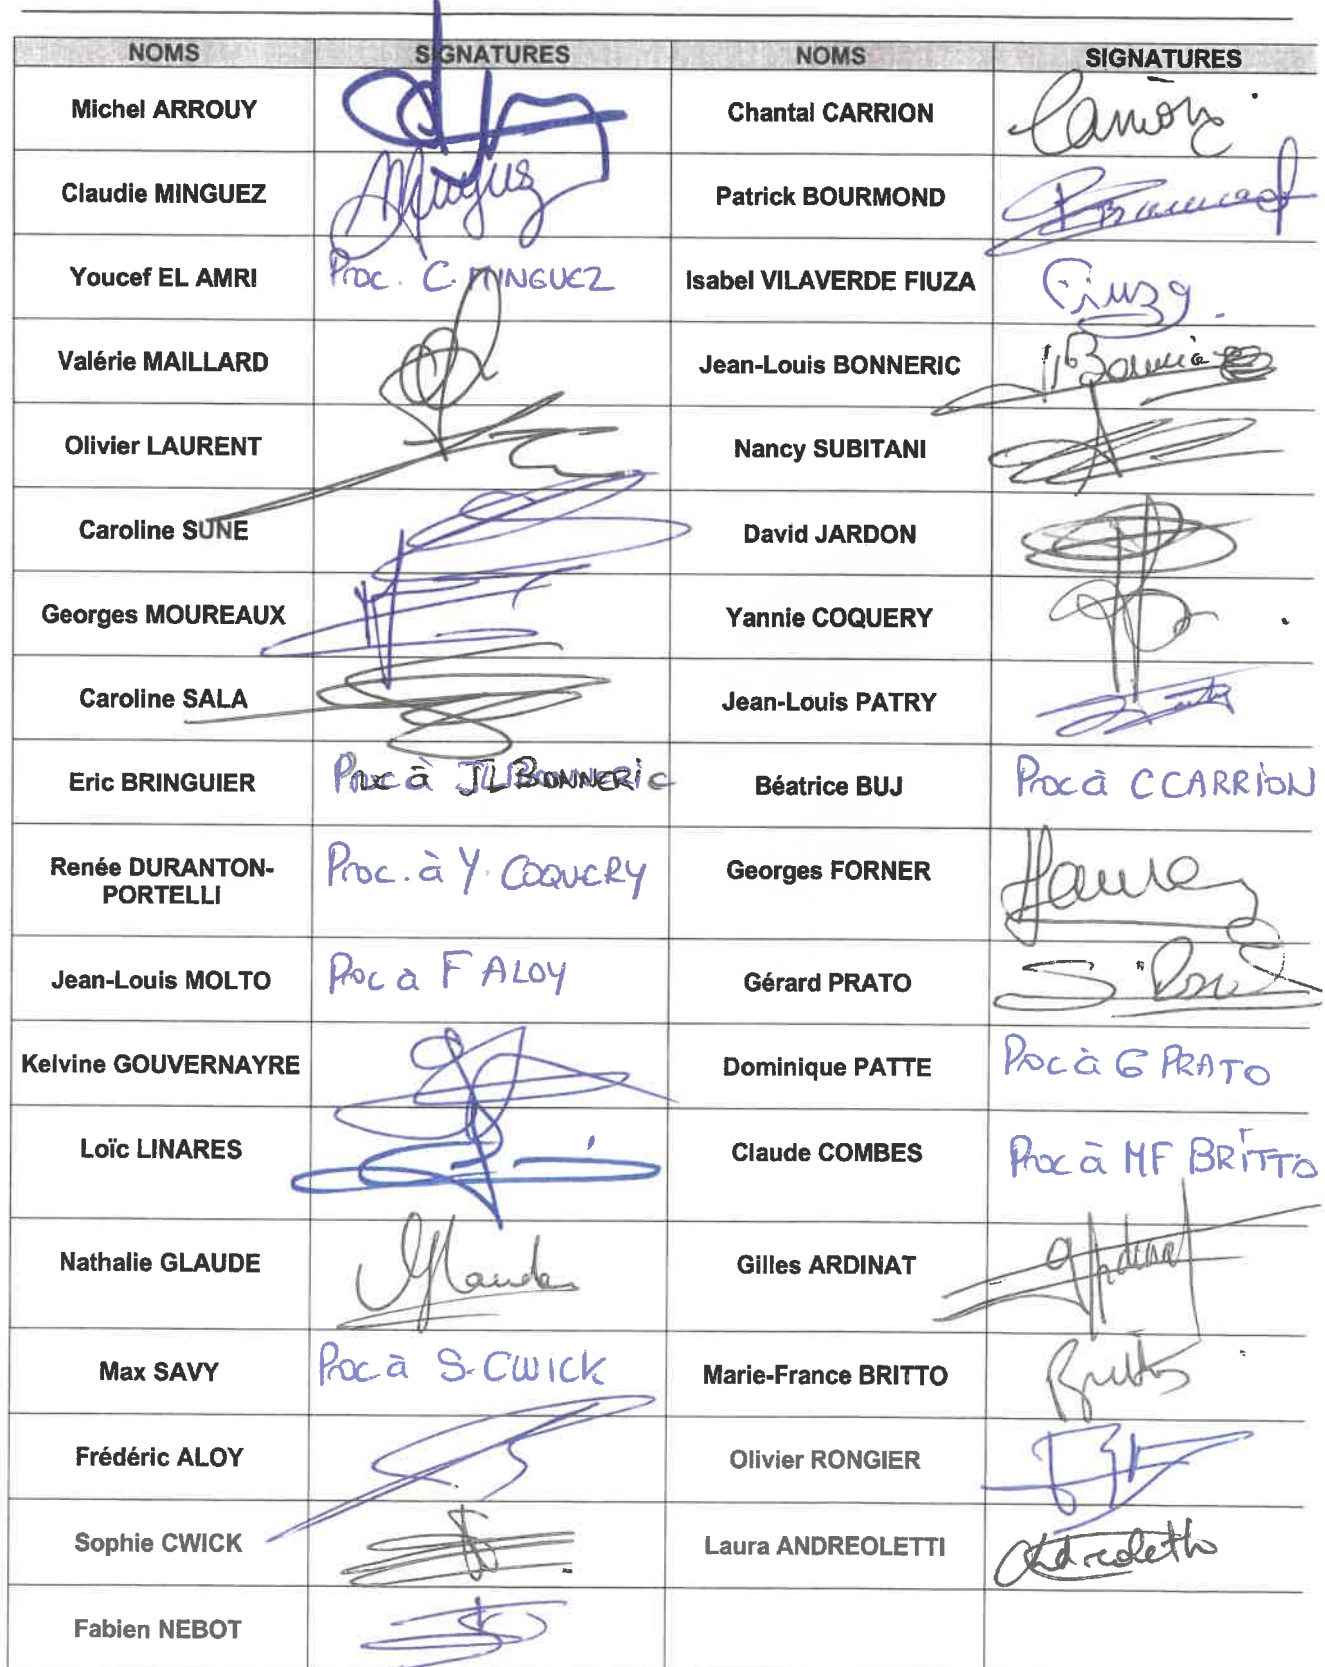 NOMS SIGNATURES NOMS SIGNATURES
Michel ARROUY Chantal CARRION Carrion
Claudie MINGUEZ Minguez Patrick BOURMOND
Youcef EL AMRI Proc. C. MINGUEZ Isabel VILAVERDE FIUZA Fiuza
Valérie MAILLARD Jean-Louis BONNERIC
Olivier LAURENT Nancy SUBITANI
Caroline SUNE David JARDON
Georges MOUREAUX Yannie COQUERY
Caroline SALA Jean-Louis PATRY
Eric BRINGUIER Proc à JL BONNERIC Béatrice BUJ Proc à C CARRION
Renée DURANTON-
PORTELLI Proc. à Y. COQUERY Georges FORNER
Jean-Louis MOLTO Proc a F ALOY Gérard PRATO
Kelvine GOUVERNAYRE Dominique PATTE Proc à G PRATO
Loïc LINARES Claude COMBES Proc à MF BRITTO
Nathalie GLAUDE Glaude Gilles ARDINAT Ardinat
Max SAVY Proc à S. CWICK Marie-France BRITTO Britto
Frédéric ALOY Olivier RONGIER
Sophie CWICK Laura ANDREOLETTI Andreoletti
Fabien NEBOT